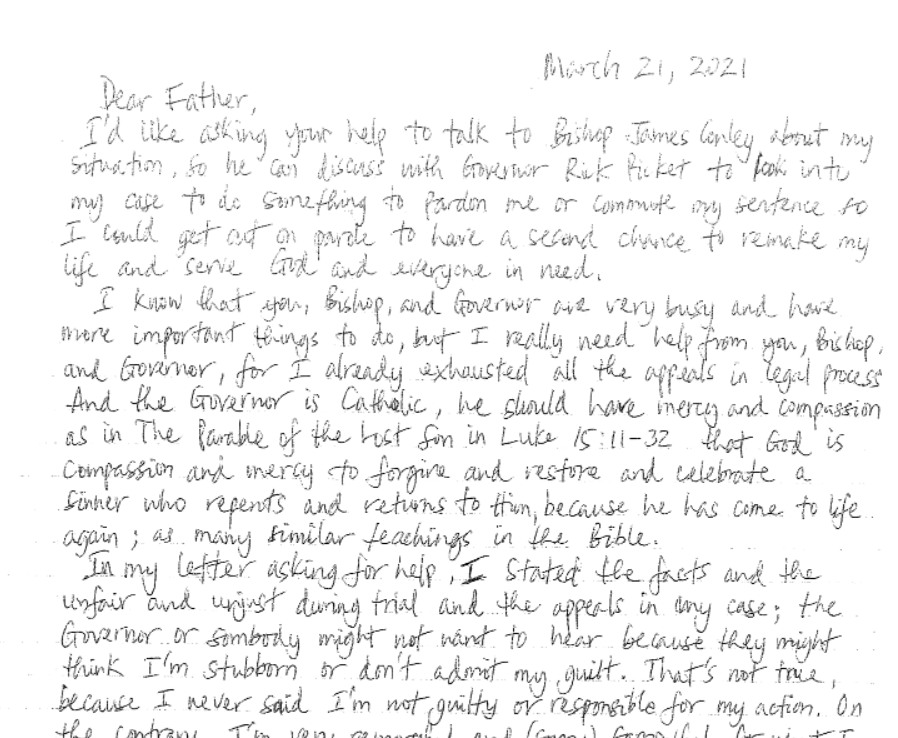 March 21, 2021
Dear Father,
I'd like asking your help to talk to Bishop James Conley about my
situation, so he can discuss with Governor Rick Ricket to look into
my case to do something to pardon me or commute my sentence so
I could get out on parole to have a second chance to remake my
life and serve God and everyone in need.
I know that you, Bishop, and Governor are very busy and have
more important things to do, but I really need help from you, Bishop,
and Governor, for I already exhausted all the appeals in legal process
And the Governor is Catholic, he should have mercy and compassion
as in The Parable of the Lost Son in Luke 15:11-32 that God is
compassion and mercy to forgive and restore and celebrate a
sinner who repents and returns to Him, because he has come to life
again; as many similar teachings in the Bible.
In my letter asking for help, I stated the facts and the
unfair and unjust during trial and the appeals in my case; the
Governor or sombody might not want to hear because they might
think I'm stubborn or don't admit my guilt. That's not true,
because I never said I'm not guilty or responsible for my action. On
the contrary, I'm very and